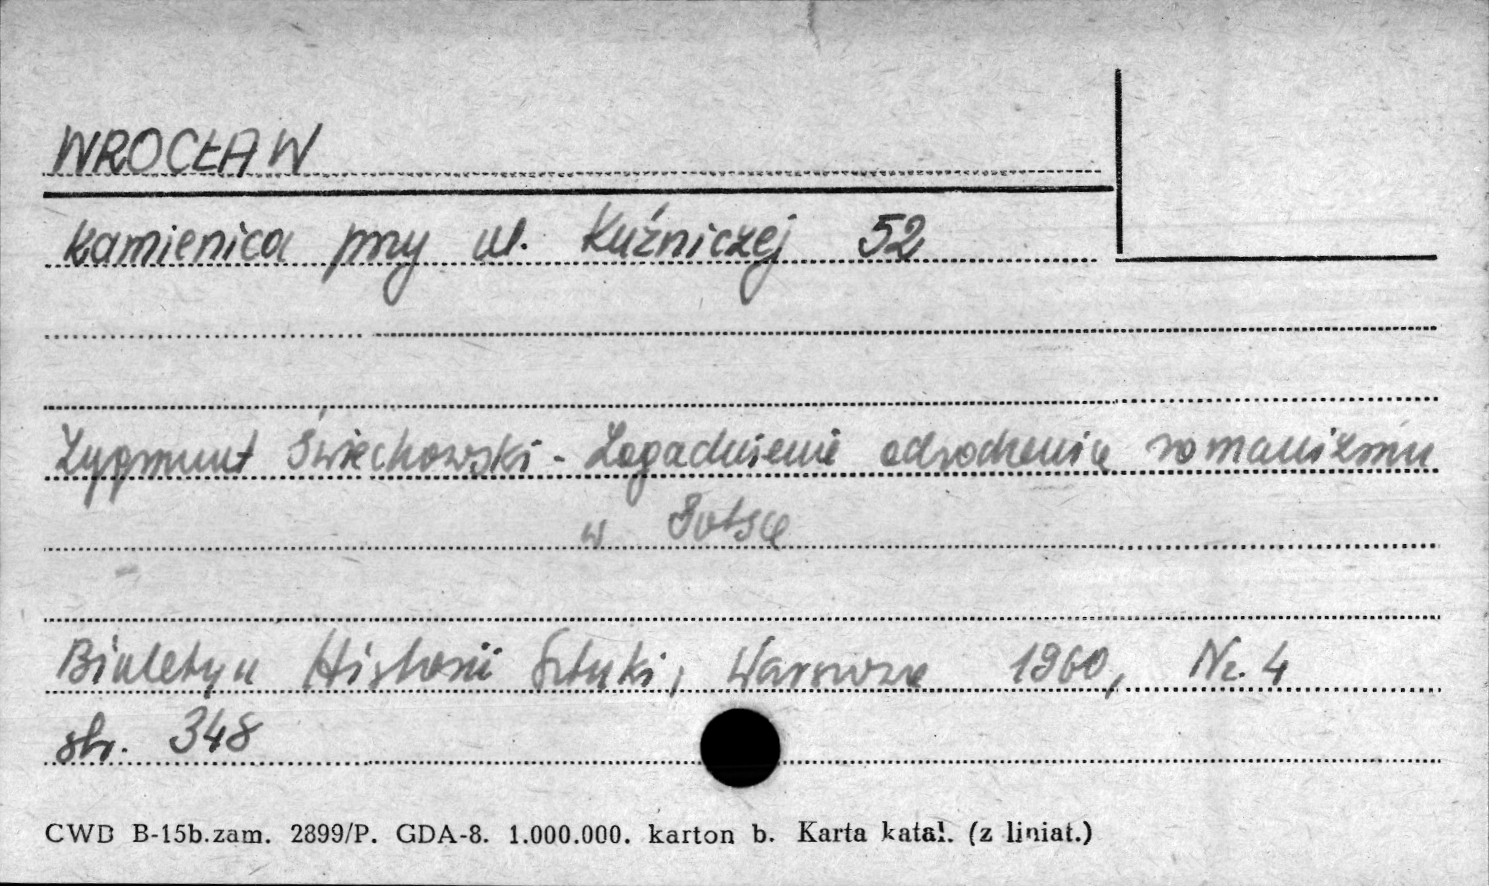 WROCŁAW
kamienica przy ul. Kuźniczej 52
Zygmunt Świechowski - Zagadnienie odrodzenia romanizmu
w Polsce
Biuletyn Historii Sztuki, Warszawa 1960, Nr. 4
str. 348
CWD B-15b.zam. 2899/P. GDA-8. 1.000.000. karton b. Karta katal. (z liniat.)